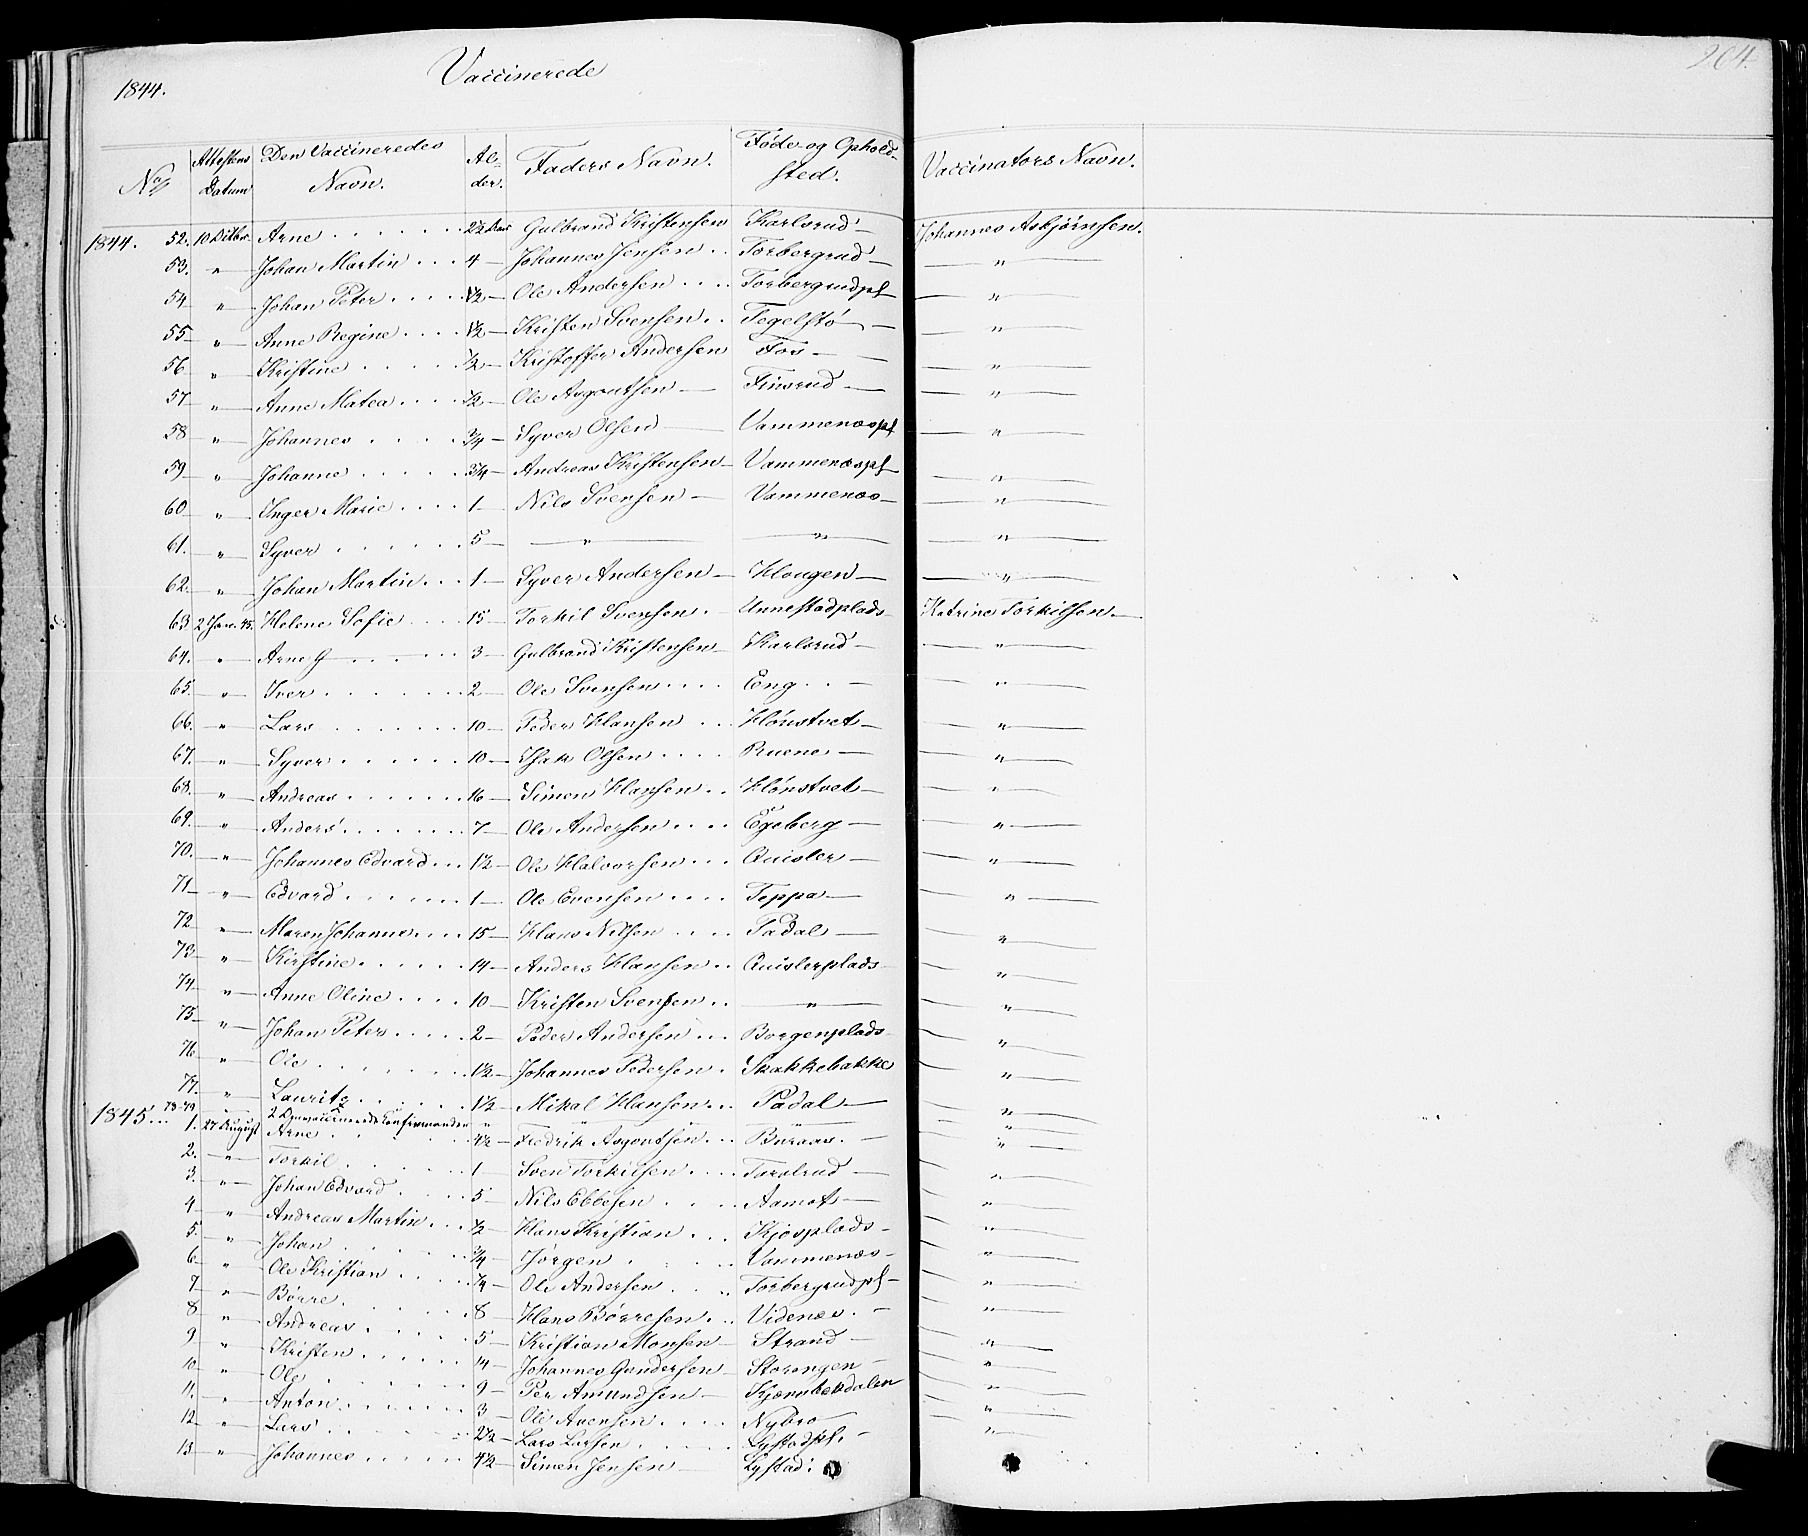 204.
1844. Vaccinerede
No Attestens Datum Den Vaccineredes Navn. Alder. Faders Navn. Føde og Opholdsted. Vaccinators Navn.
1844. 52. 10 Arne 2½ Gulbrand Kristensen Karlsrud Johannes Asbjørnsen.
53. " Johan Martin 4 Johannes Jensen Torbergrud "
54 " Johan Peter 1½ Ole Andersen Torbergrudpl "
55 " Anne Regine 1½ Kristen Svensen Tegelstø "
56 " Kristine ½ Kristoffer Andersen Fos "
57 " Anne Matea ½ Ole Asgoutsen Finsrud "
58 " Johannes ¾ Syver Olsen Vammenæspl "
59 " Johanne ¾ Andreas Kristensen Vammenæspl "
60 " Inger Marie 1 Nils Svensen Vammenæs "
61. " Syver 5 " " "
62. " Johan Martin 1 Syver Andersen Hougen "
63 2 Jan. 45. Helene Sofie 15 Torkil Svensen Unnestadplads Katrine Torkilsen
64. " Arne G 3 Gulbrand Kristensen Karlsrud "
65. " Iver 2 Ole Svensen Eng "
66. " Lars 10 Peder Hansen Hønstvet "
67. " Syver 10 Isak Olsen Ruene "
68. " Andreas 16 Simen Hansen Hønstvet "
69. " Anders 7 Ole Andersen Egeberg "
70. " Johannes Edvard 1½ Ole Halvorsen Quisler "
71 " Edvard 1 Ole Evensen Teppa "
72 " Maren Johanne 15 Hans Nilsen Tadal "
73 " Kirstine 14 Anders Hansen Quislerplads "
74 " Anne Oline 10 Kristen Svensen " "
75 " Johan Peter 2 Peder Andersen Borgenplads "
76 " Ole 1½ Johannes Pedersen Skakkebakke "
77. " Lauritz 1½ Mikal Hansen Tadal "
78-79 " 2 Konfirmander " " " "
1845 1. 27 August Arne 4½ Fredrik Asgoutsen Buraas. "
2. " Torkil 1 Sven Torkilsen Taralrud "
3. " Johan Edvard 5 Nils Ebbesen Aamot "
4 " Andreas Martin ½ Hans Kristian Kjosplads "
5. " Johan ¾ Jørgen Vammenæs "
6 " Ole Kristian ¼ Ole Andersen Torbergrudpl "
7 " Børre 8 Hans Børresen Videnæs. "
8 " Andreas 5 Kristian Monsen Strand "
9 " Kristen 14 Johannes Gundersen Storengen "
10 " Ole 9 Per Amundsen "
11. " Anton 3 Ole Avensen Nybro "
12 " Lars 2½ Lars Larsen Lystadpl. "
13 " Johannes 4½ Simen Jensen Lystad